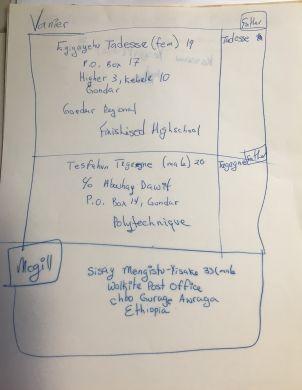 Vanier
Father
Egigayehu Tadesse (fem) 19
Tadesse
P.O. Box 17
Higher 3, Kebele 10
Gondar
Gondar Regional
Finishised Highschool
Father
(male) 20
c/o Abuhay Dawit
P.O. Box 14, Gondar
Polytechnique
Mcgill
Sisay Mengistu-Kisake 33(male
Wolkite Post Office
Gurage Awraga
Ethiopia